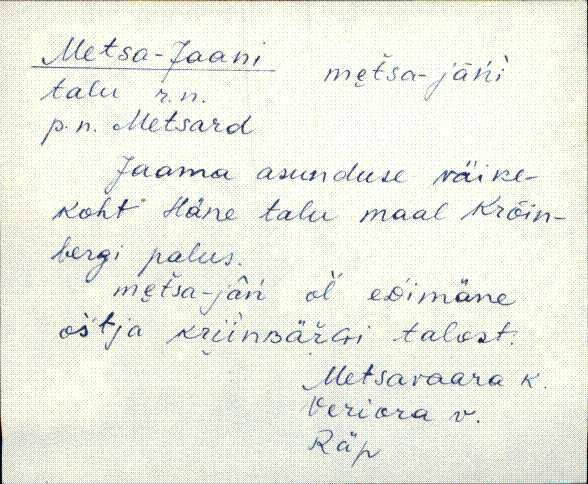 Metsa-Jaani mẹt́sa-jāńi
talu r.n.
p.n. Metsard
Jaama asunduse väike-
koht Häne talu maal Krõin-
bergi palus.
mẹt́sa-jâń oĺ eDimäne
ośtja kriinBäŕGi talost.
Metsavaara k.
Veriora v.
Räp